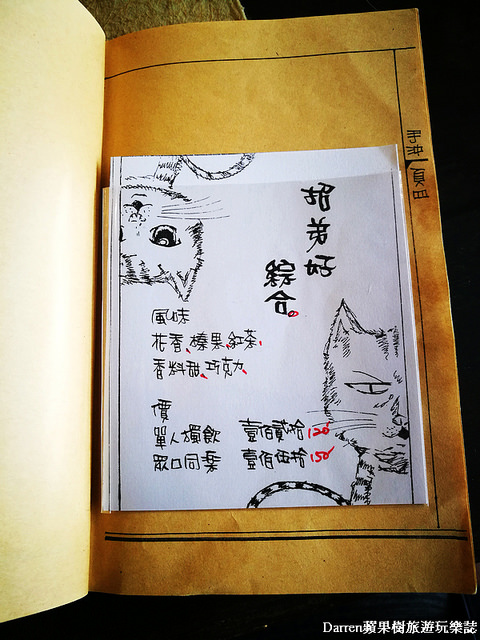 招弟好
綜合。
風味
花香、榛果、紅茶、
香料甜、巧克力、
價
單人獨飲 壹佰貳拾 120
眾口同桌 壹佰伍拾 150
Darren蘋果樹旅遊玩樂誌